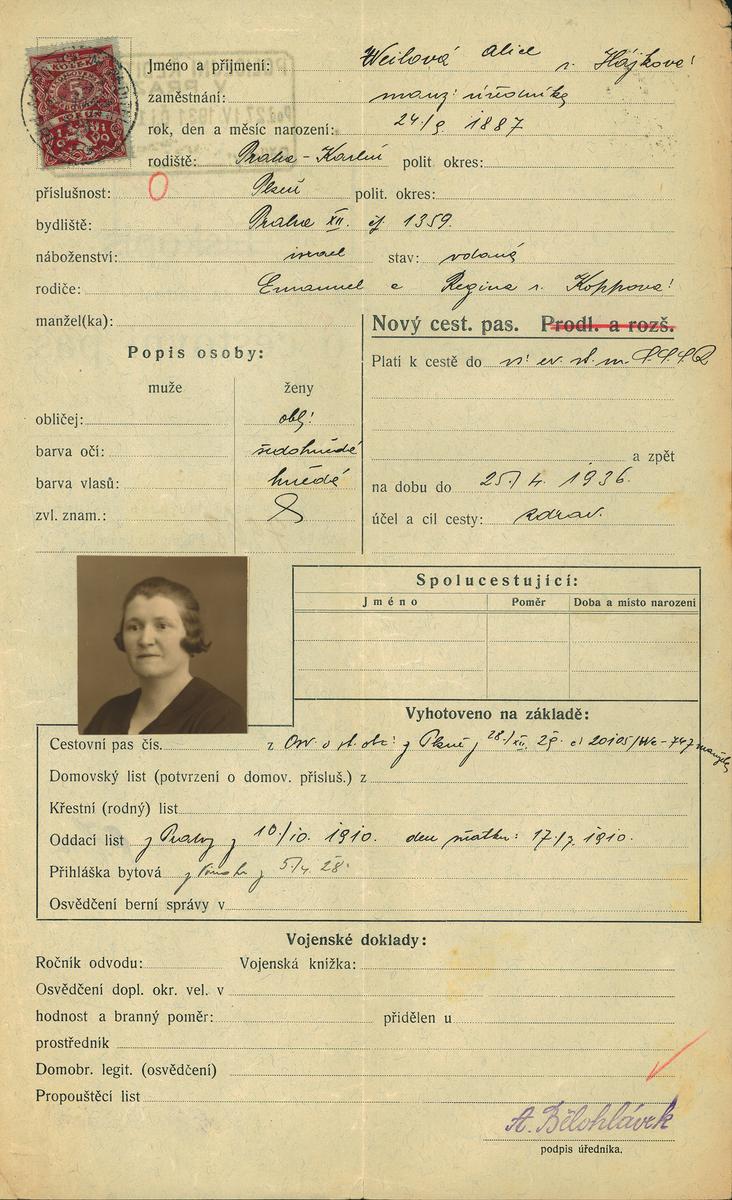 Jméno a příjmení: Weilová Alice r. Hájková
zaměstnání: manž. úředníka
rok, den a měsíc narození: 24/9. 1887
rodiště: Praha-Karlín polit okres:
příslušnost: O Plzeň polit. okres:
bydliště: Praha XII. čp. 1359.
náboženství: israel stav: vdaná
rodiče: Emanuel a Regina r. Koppova
manžel(ka):
Nový cest. pas. Prodl. a rozš.
Popis osoby:
Platí k cestě do
muže ženy
obličej: obl.
barva očí: šedohnědé
barva vlasů: hnědé
zvl. znam.:
a zpět
na dobu do 25./4. 1936.
účel a cíl cesty: zdrav.
Spolucestující:
Jméno Poměr Doba a místo narození
Vyhotoveno na základě:
Cestovní pas čís. z Osv. o st. obč. z Plzně z 28./XII. 29. čj 20105/We-747
Domovský list (potvrzení o domov. přísluš.) z
Křestní (rodný) list
Oddací list z Prahy z 10./10. 1910. den sňatku: 17./7. 1910.
Přihláška bytová z 5./4. 28.
Osvědčení berní správy v
Vojenské doklady:
Ročník odvodu: Vojenská knížka:
Osvědčení dopl. okr. vel. v
hodnost a branný poměr: přidělen u
prostředník
Domobr. legit. (osvědčení)
Propouštěcí list
A. Bělohlávek
podpis úředníka.